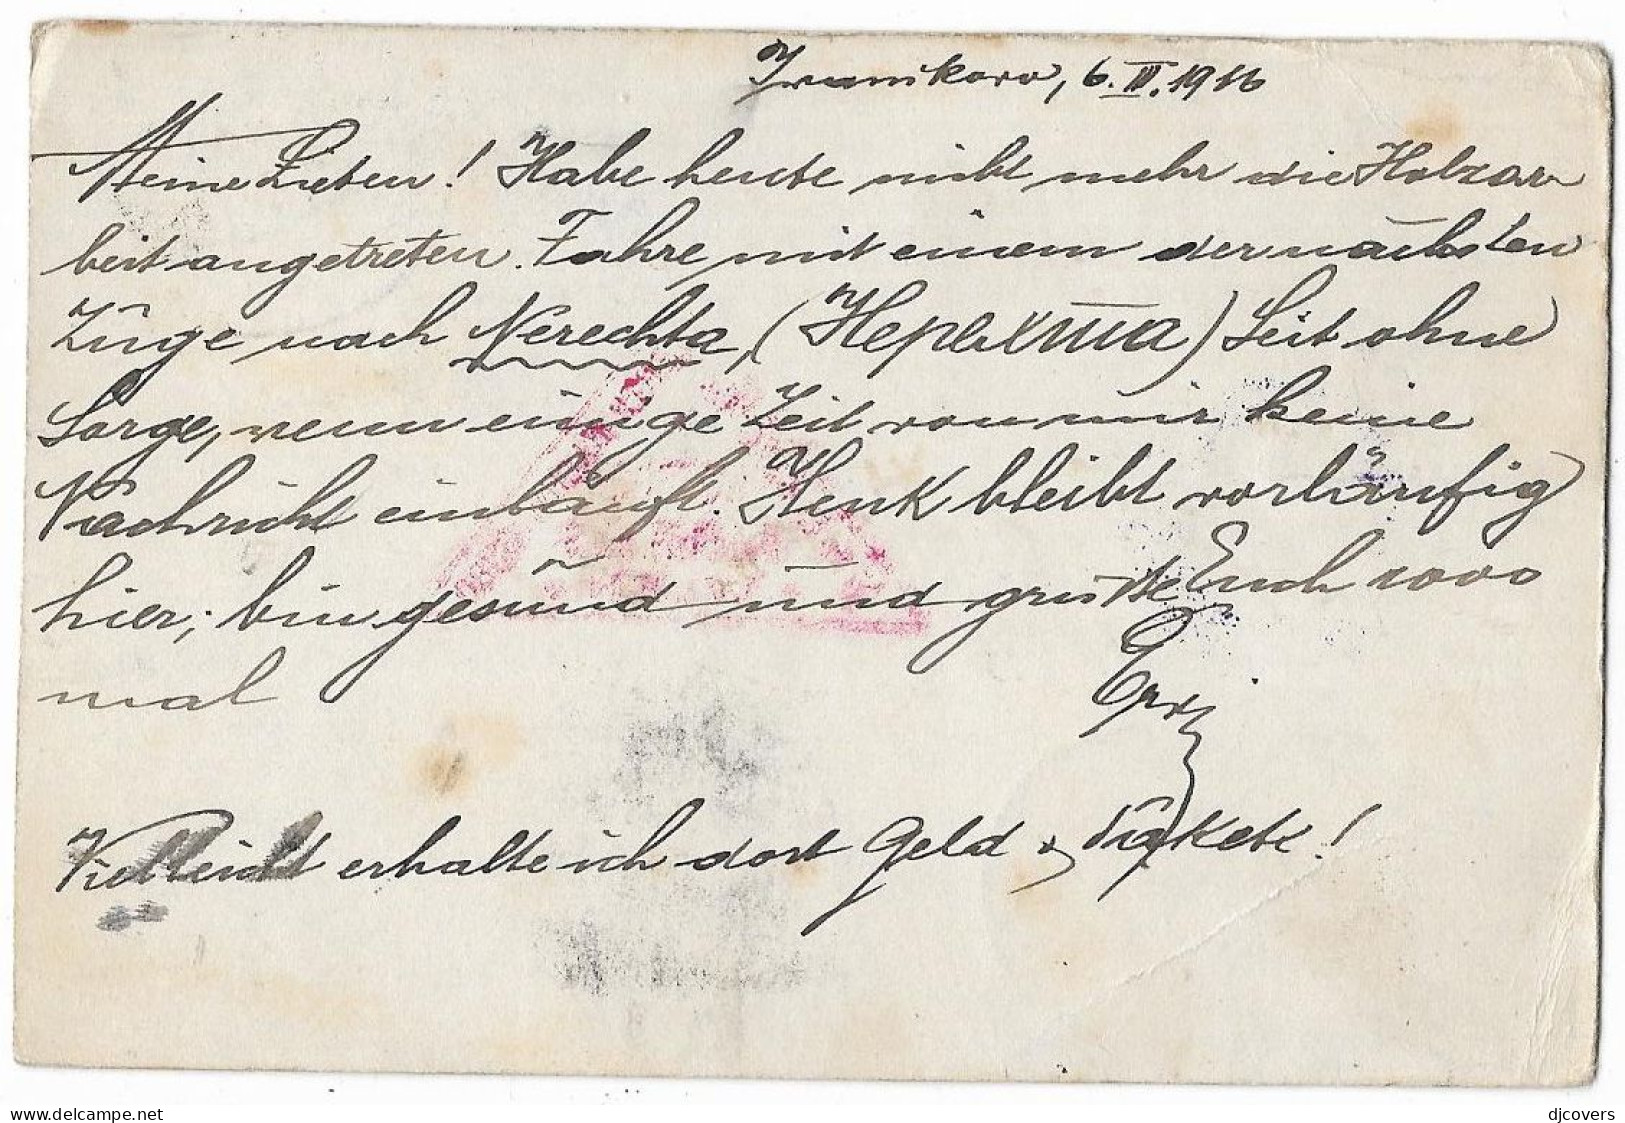 Ivanikovo, 6.III.1916
Meine Lieben! Habe heute nicht mehr die Holzar
beit angetreten. Fahre mit einem der nächsten
Züge nach Nerechta, (Нерехта) Seit ohne
Sorge, wenn einige Zeit von mir keine
Nachricht einläuft. Henk bleibt vorläufig
hier; bin gesund und grüße Euch 1000
mal
Vielleicht erhalte ich dort Geld u. Pakete!
djcovers